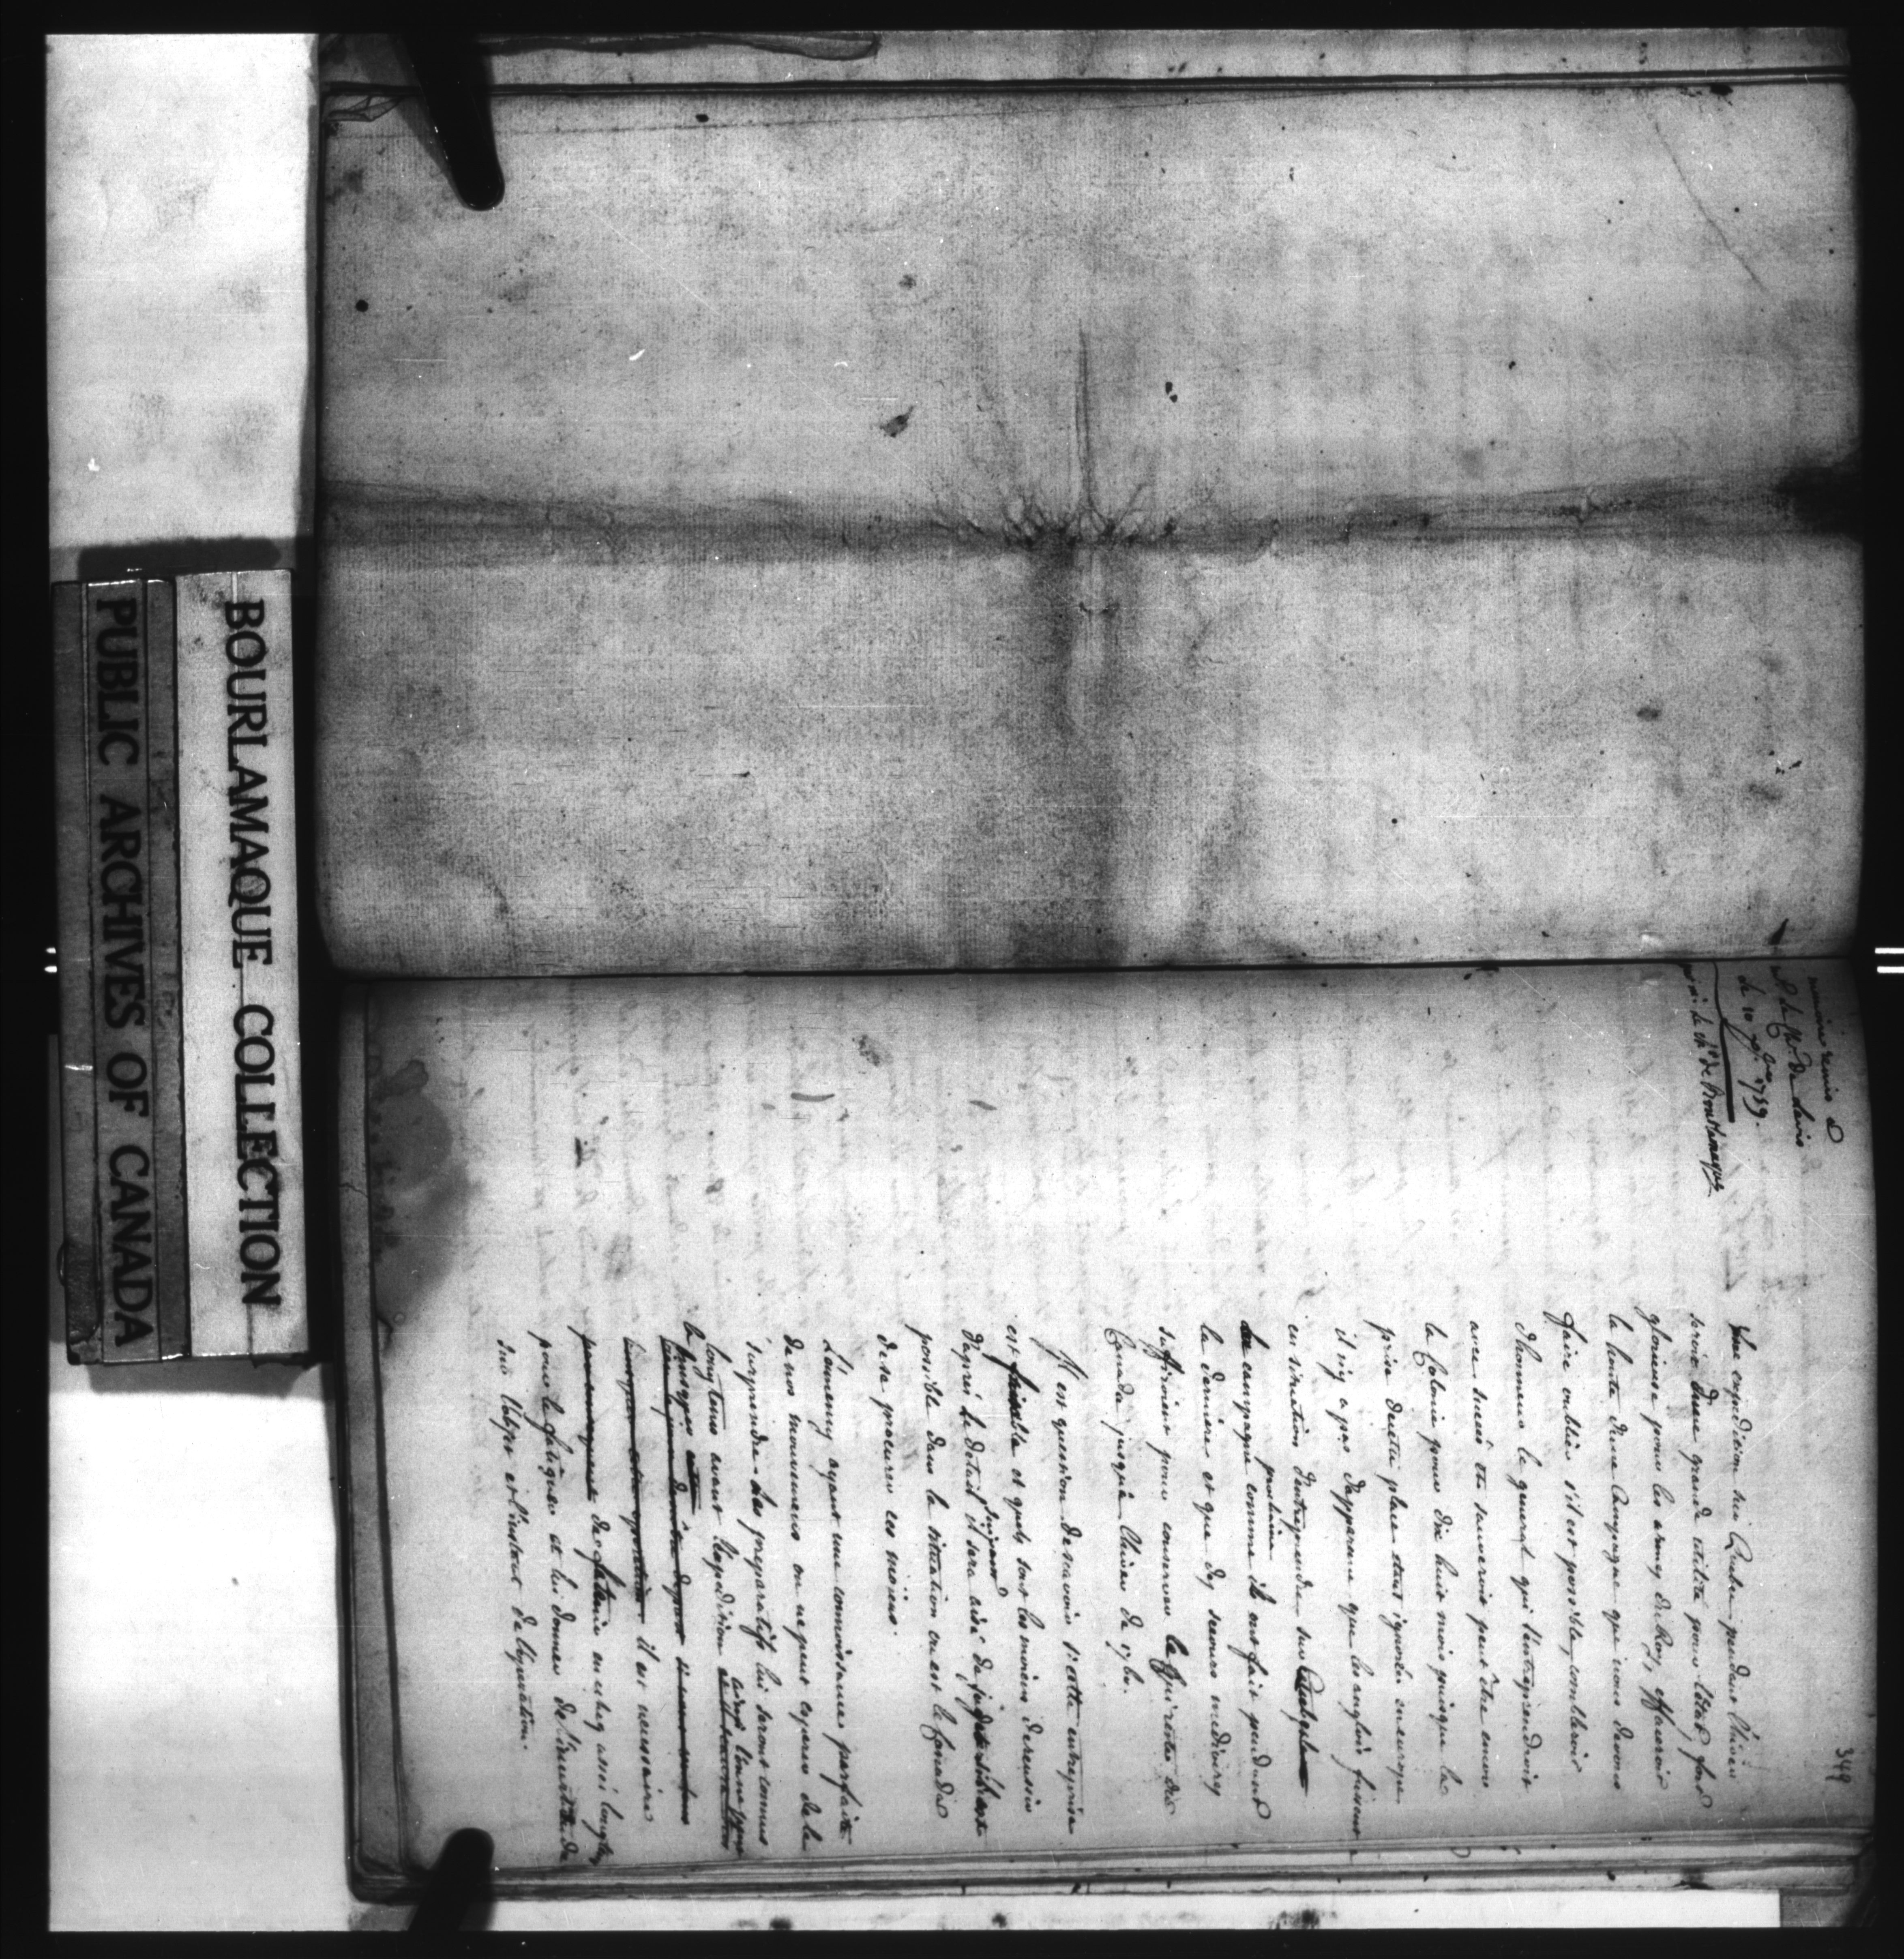 BOURLAMAQUE COLLECTION
PUBLIC ARCHIVES OF CANADA
349
remis a
Mr de Levis
le 10 9bre 1759.
de Bourlamaque
Une expedition sur Quebec pendant l'hiver
seroit d'une grande utilité pour l'état fort
glorieuse pour les armes du Roy, effaceroit
la honte d'une Campagne que nous devons
faire oublier s'il est possible, combleroit
d'honneur le general qui l'entreprendroit
avec succés et sauveroit peut être encore
la Colonie pour dix huit mois puisque la
prise de cette place etant ignorée en europe
il n'y a pas d'apparence que les anglois fussent
en situation d'entreprendre sur
campagne prochaine comme ils ont fait pendant
la derniere et que des secours mediocres
suffiroient pour conserver le reste du
Canada jusqu'a l'hiver de 1760.
Il est question de sçavoir si cette entreprise
est faisable et quels sont les moiens de reussir
d'apres le detail suivant il sera aisé de juger si elle est
possible dans la situation ou est le Canada
de se procurer ces moiens.
L'ennemy ayant une connoissance parfaite
de nos mouvemens on ne peut esperer de le
surprendre. Les preparatifs lui seront connus
longtems avant l'expedition
il est necessaire
de le tenir en echec assi longtems
pour le fatiguer et lui donner de l'incertitude
sur l'objet et l'instant de l'execution.